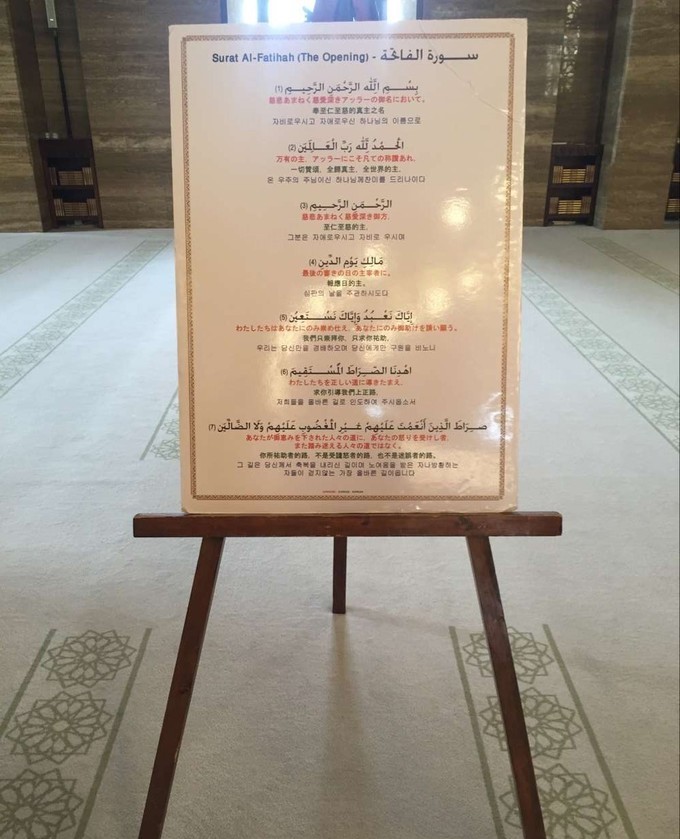 Surat Al-Fatihah (The Opening) - ســورة الفاتحة
بِسْــمِ اللَّهِ الرَّحْمَنِ الرَّحِيــمِ (1)
慈悲あまねく慈愛深きアッラーの御名において。
奉至仁至慈的真主之名
자비로우시고 자애로우신 하나님의 이름으로
الْحَمْدُ لِلَّهِ رَبِّ الْعَــالَمِيْنَ (2)
万有の主、アッラーにこそ凡ての称讃あれ、
一切贊頌，全歸真主，全世界的主，
온 우주의 주님이신 하나님께찬미를 드리나이다
الرَّحْمَــنِ الرَّحِــيمِ (3)
慈悲あまねく慈愛深き御方、
至仁至慈的主，
그분은 자애로우시고 자비로 우시며
مَالِكِ يَوْمِ الدِّينِ (4)
最後の審きの日の主宰者に。
報應日的主。
심판의 날을 주관하시도다
إِيَّاكَ نَعْــبُدُ وَإِيَّاكَ نَسْــتَعِيْنُ (5)
わたしたちはあなたにのみ崇め仕え、あなたにのみ御助けを請い願う。
我們只崇拜你，只求你祐助，
우리는 당신만을 경배하오며 당신에게만 구원을 비노니
اهْدِنَا الصِّــرَاطَ الْمُســْتَقِيمَ (6)
わたしたちを正しい道に導きたまえ、
求你引導我們上正路，
저희들을 올바른 길로 인도하여 주시옵소서
صِــرَاطَ الَّذِينَ أَنْعَمْتَ عَلَيْهِمْ غَــيْرِ الْمَغْضُوبِ عَلَيْهِمْ وَلَا الضَّالِّيْنَ (7)
あなたが御恵みを下された人々の道に、あなたの怒りを受けし者、
また踏み迷える人々の道ではなく。
你所祐助者的路，不是受譴怒者的路，也不是迷誤者的路。
그 길은 당신께서 축복을 내리신 길이며 노여움을 받은 자나방황하는
자들이 걷지않는 가장 올바른 길이옵니다